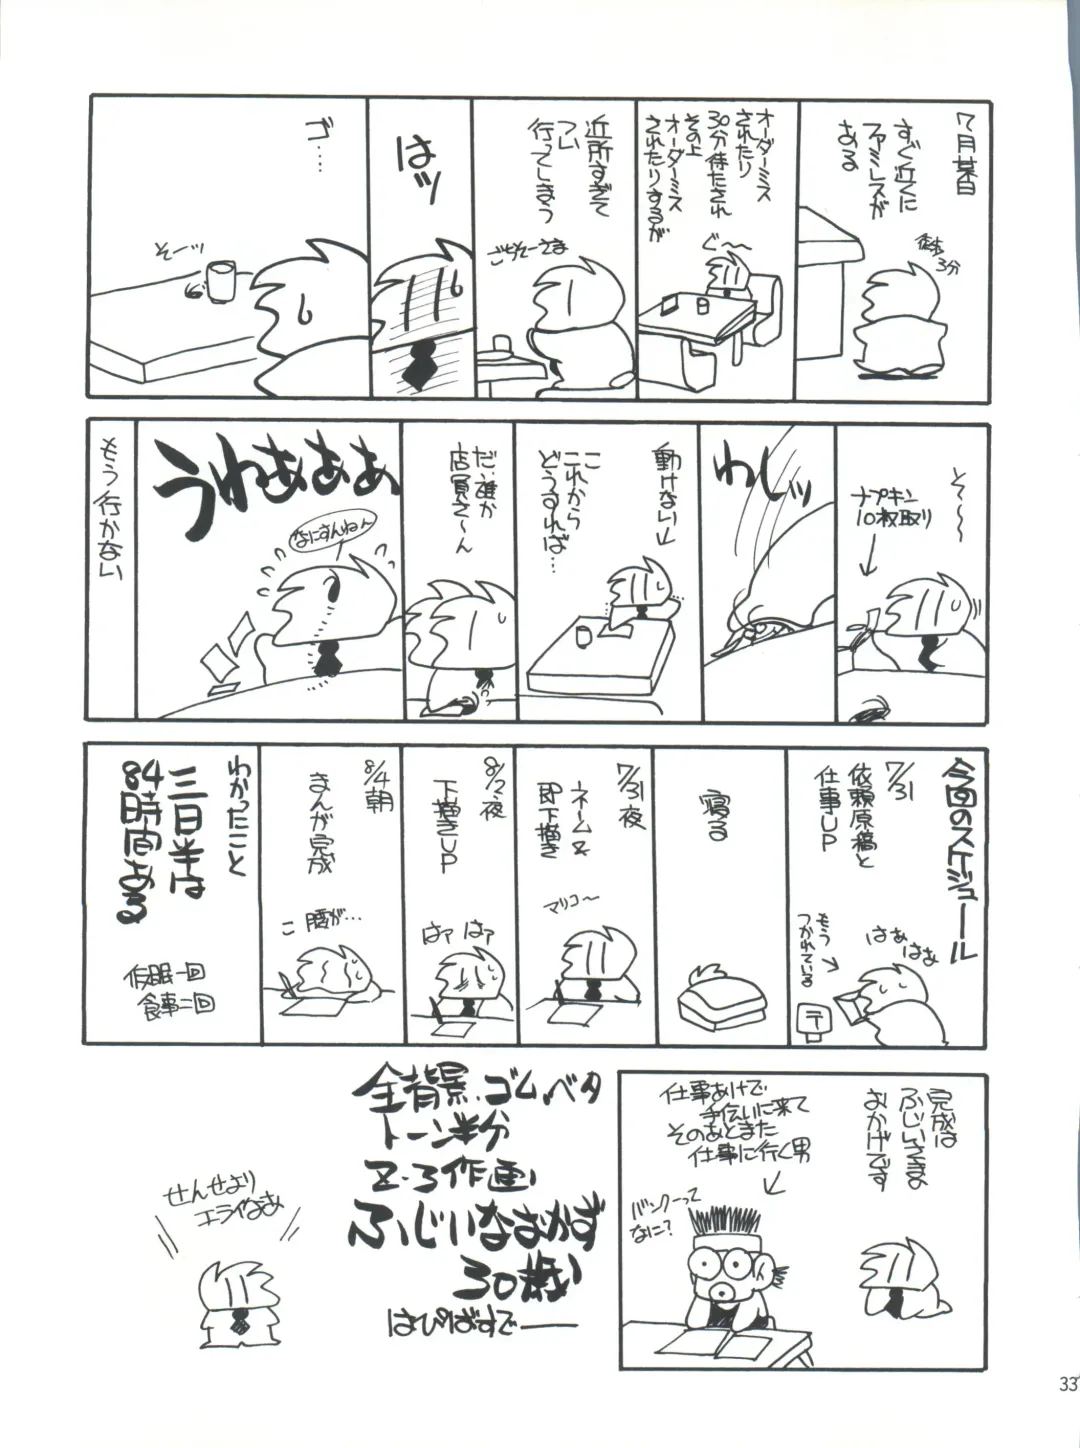 7月某日
すぐ近くに
ファミレスが
ある
徒歩
3分
オーダーミス
されたり
30分待たされ
その上
オーダーミス
されたりするが
ぐ〜〜
近所すぎて
つい
行ってしまう
ごちそーさま
はッ
ゴ……
そーッ
と〜〜〜
ナプキン
10枚取り
わしッ
動けない
こ
これから
どうすれば…
だ、誰か
店員さ〜ん
うわあああ
なにすんねん
もう行かない
今回のスケジュール
7/31
依頼原稿と
仕事UP
はぁ
はぁ
もう
つかれている
〒
寝る
7/31夜
ネーム&
即下描き
マリコ〜
8/2夜
下描きUP
はァ はァ
8/4朝
まんが完成
こ 腰が…
わかったこと
三日半は
84時間ある
仮眠一回
食事二回
完成は
ふじいさまの
おかげです
仕事あけで
手伝いに来て
そのあとまた
仕事に行く男
バンクーって
なに?
全背景、ゴム、ベタ
トーン半分
Z・3作画
ふじいなおかず
30歳
はぴばすでー
せんせより
エライなぁ
33